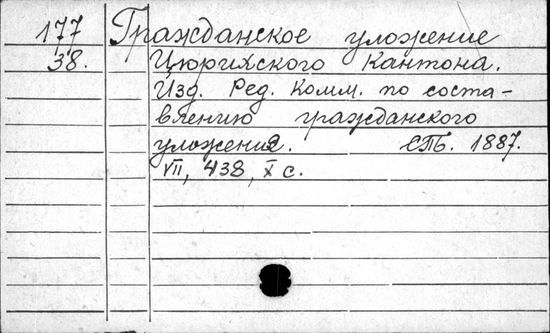 177 Гражданское уложение
38. Цюрихского Кантона.
Изд. Ред. Комм. по соста-
влению гражданского
уложения. СПб. 1887.
VII, 438, X с.